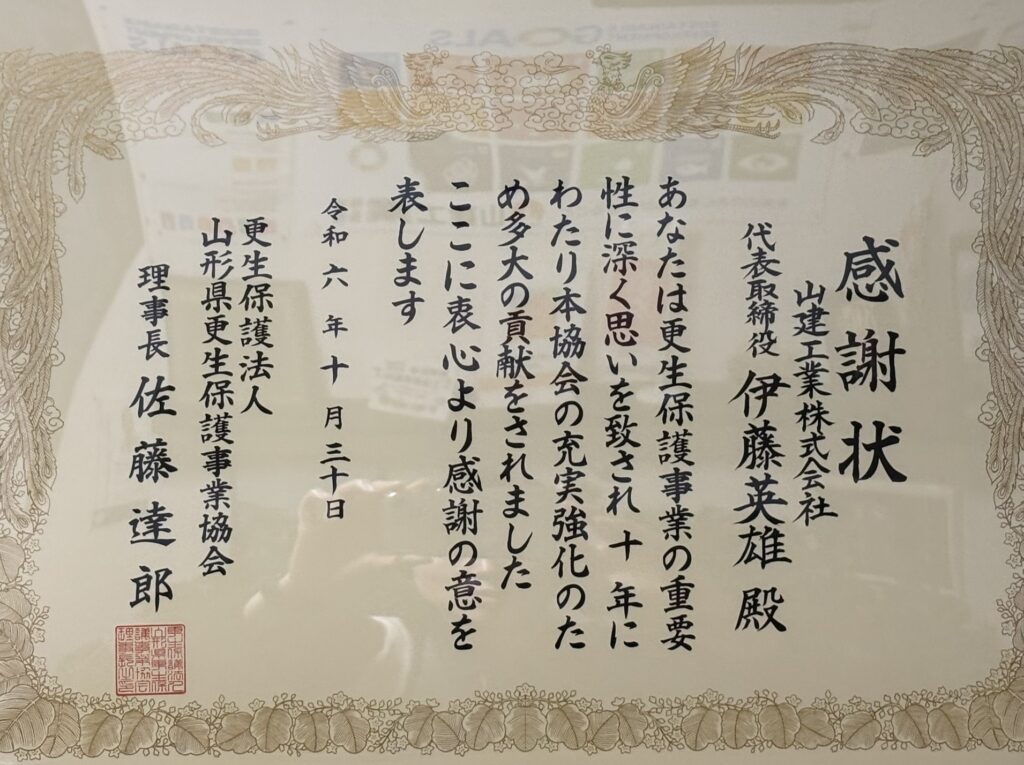 感謝状
山建工業株式会社
代表取締役 伊藤英雄 殿
あなたは更生保護事業の重要
性に深く思いを致され十年に
わたり本協会の充実強化のた
め多大の貢献をされました
ここに衷心より感謝の意を
表します
令和六年十月三十日
更生保護法人
山形県更生保護事業協会
理事長 佐藤達郎
GOALS